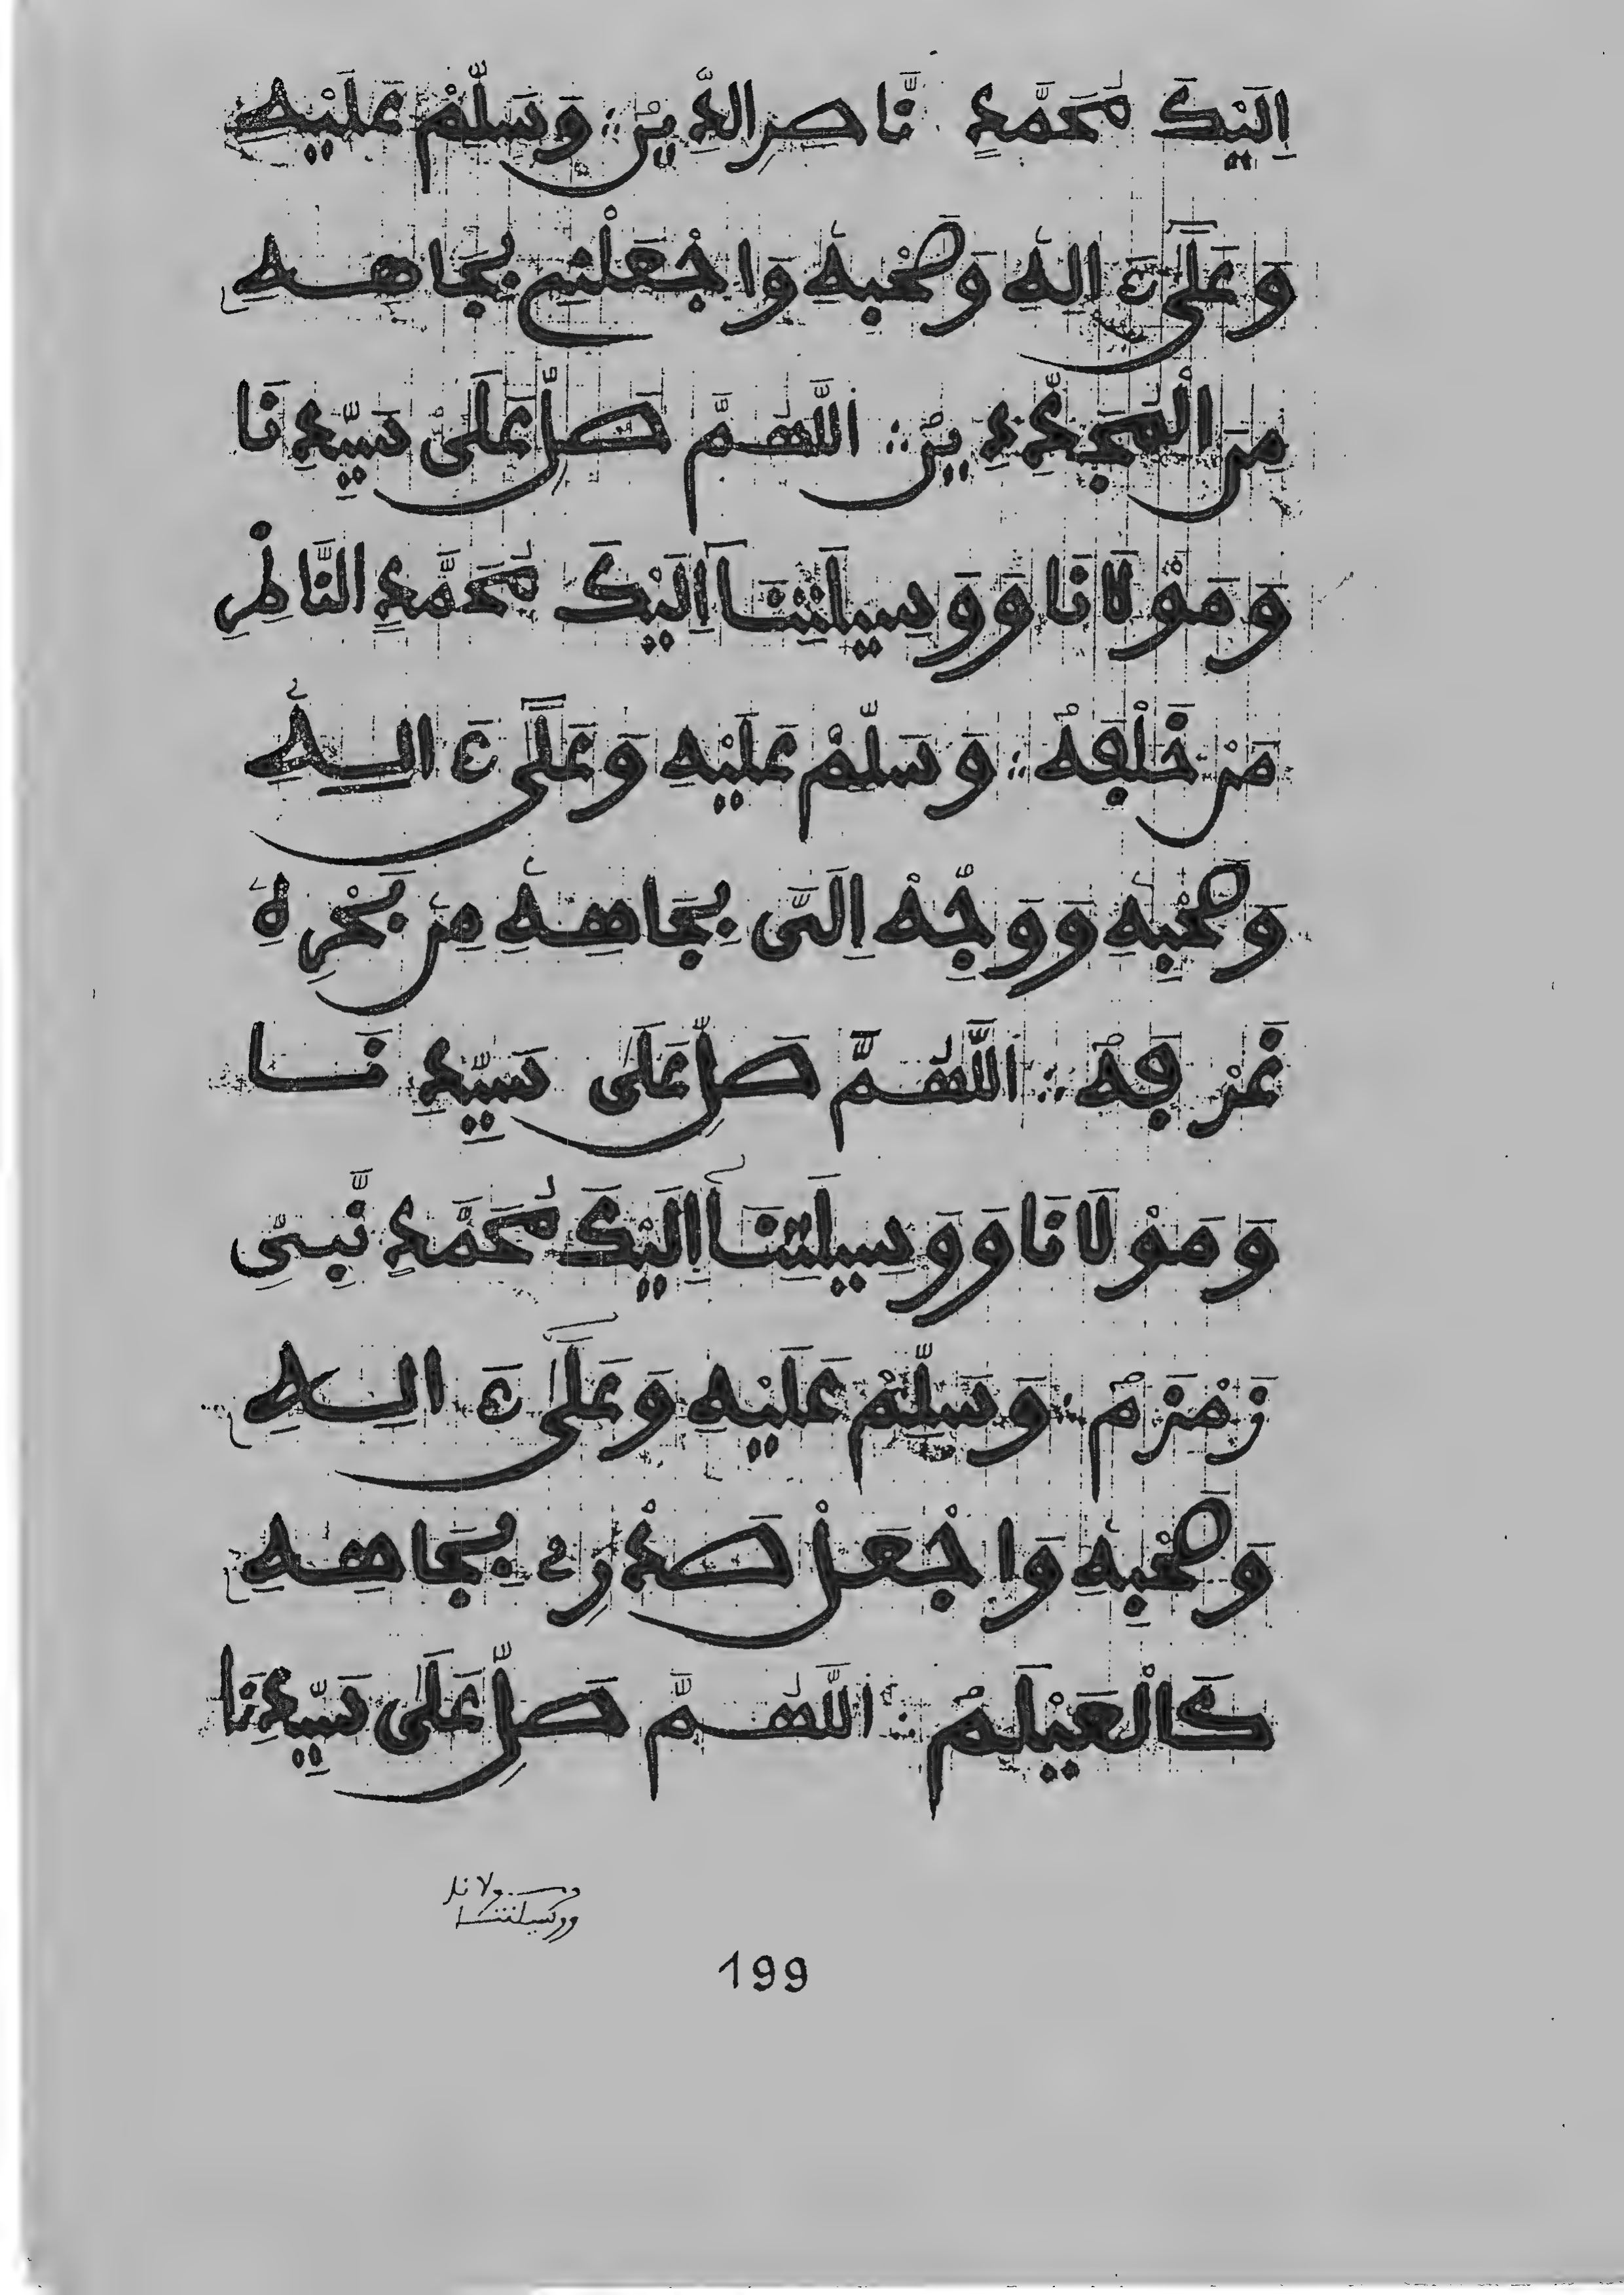 اِلَيْكَ مُحَمَّدٍ نَّاصِرِ الدِّينِ وَسَلِّمْ عَلَيْهِ
وَعَلَىٰٓ ءَالِهِ وَصَحْبِهِ وَاجْعَلْنِي بِجَاهِهِ
مِنَ الْمُجَدِّدِينَ اَللَّهُمَّ صَلِّ عَلَى سَيِّدِنَا
وَمَوْلَانَا وَوَسِيلَتِنَآ اِلَيْكَ مُحَمَّدٍ النَّاظِرِ
مَنْ خَلْفَهُ وَسَلِّمْ عَلَيْهِ وَعَلَىٰٓ ءَالِهِ
وَصَحْبِهِ وَوَجِّهْ اِلَىَّ بِجَاهِهِ مِن بَحْرِهِ
غَرْفَهُ اَللَّهُمَّ صَلِّ عَلَى سَيِّدِنَا
وَمَوْلَانَا وَوَسِيلَتِنَآ اِلَيْكَ مُحَمَّدٍ نَّبِىِّ
زَمْزَمَ وَسَلِّمْ عَلَيْهِ وَعَلَىٰٓ ءَالِهِ
وَصَحْبِهِ وَاجْعَلْ صَدْرِي بِجَاهِهِ
كَالْعَيْلَمِ اَللَّهُمَّ صَلِّ عَلَى سَيِّدِنَا
ومولانا
ووسيلتنا
199